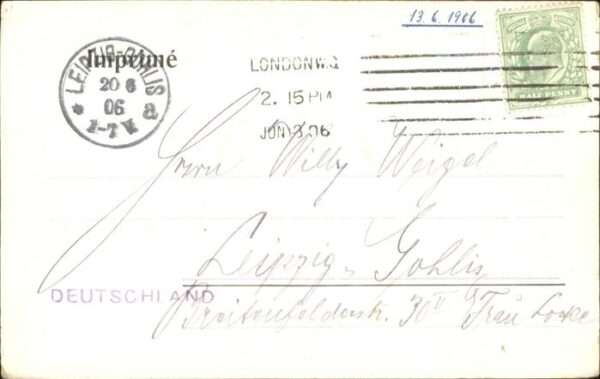 13.6.1906
Imprimé
LEIPZIG-GOHLIS
20 6
06
1-7 V.
* a
LONDON W.
2. 15 PM
JUN 06
HALFPENNY
Herrn Willy Weigel
Leipzig-Gohlis
DEUTSCHLAND
Breitenfelderstr. 30 II Frau